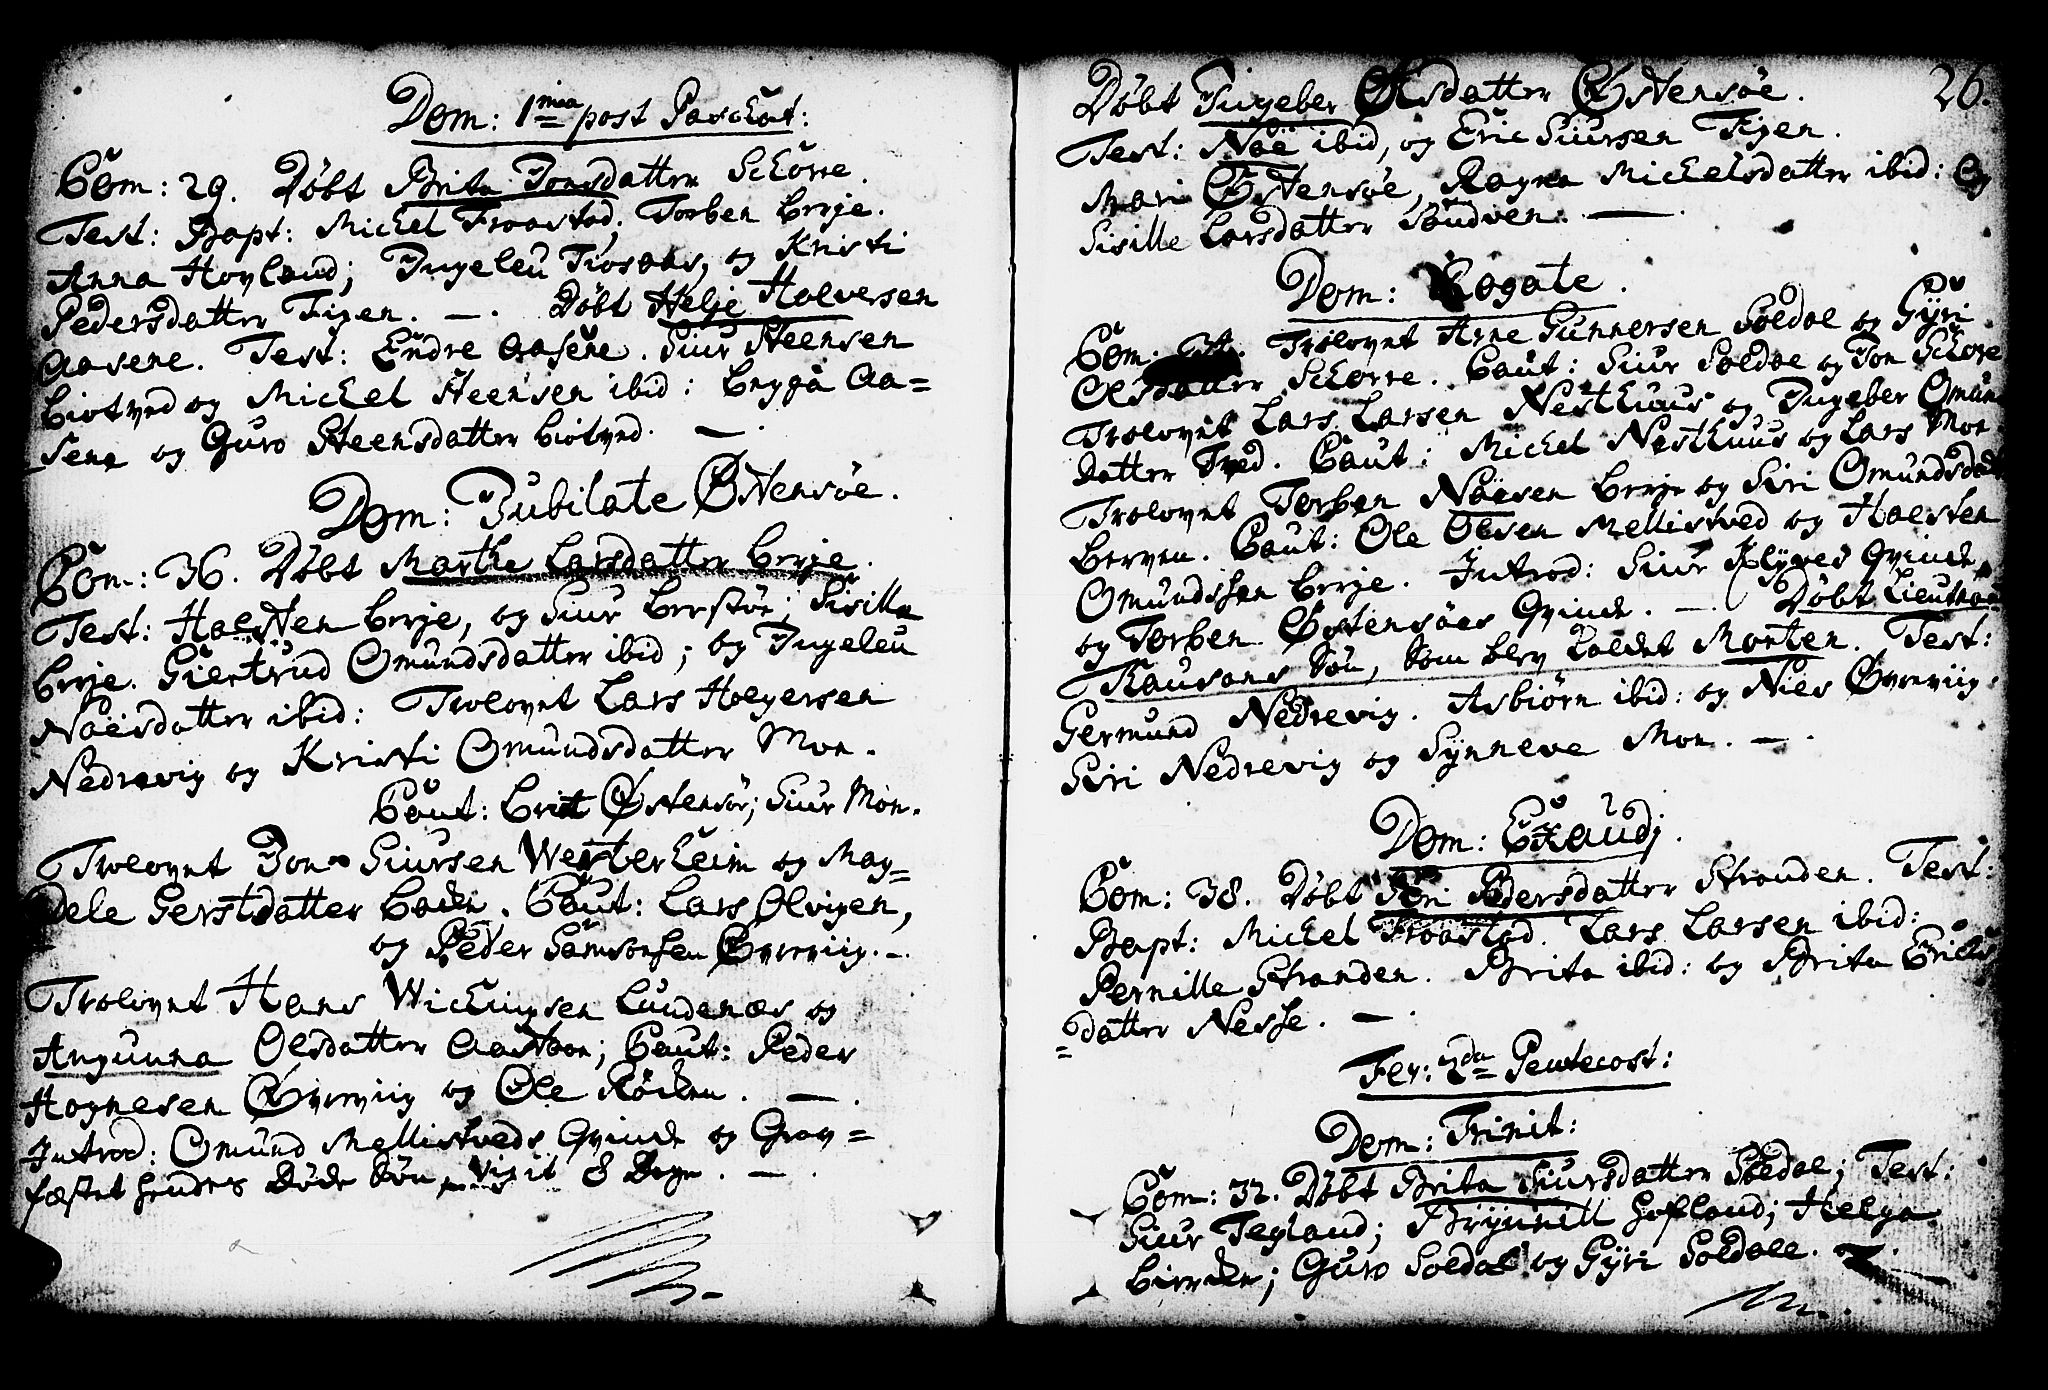 Dom: 1ma post Paschat:
Com: 29. Døbt Brita Jonsdatter Schorre.
Test: Bapt: Michel Froastad, Torben Berje.
Anna Hovland; Ingeleu Tiosaas, og Kristi
Pedersdatter Fixen. —. Døbt Helje Halversen
Aasene. Test: Endre Aasene. Siur Steensen
Biotved og Michel Steensen ibid: Brygga Aa=
sene og Guro Steensdatter Biotved. —.
Dom: Jubilate Østensøe.
Com: 36. Døbt Marthe Larsdatter Berje.
Test: Halsten Berje, og Siur Berstøe; Sisille
Berje. Giertrud Omundsdatter ibid; og Ingeleu
Naëisdatter ibid: Trolovet Lars Holgersen
Nedrevig og Kristi Omundsdatter Mon.
Caut: Brit Østensøe; Siur Mon.
Trolovet Jon Siursen Westerheim og Mag=
dele Gerstdatter. Caut: Lars Olvigen,
og Peder Samsonsen Øvreviig. —
Trolovet Hans Wichingsen Lundenæs og
Angunna Olsdatter; Caut: Peder
Hognesen Øvreviig og Ole Røchen. —.
Introd: Omund Mellistveds Qvinde og Grav=
fæstet hendes Døde Søn, 8 Dage. —.
26.
Døbt Ingeber Olsdatter Østensøe.
Test: Naë ibid, og Eric Siursen Fixen.
Mari Østensøe, Ragna Michelsdatter ibid: Og
Sisille Larsdatter Sandven. —.
Dom: Rogate.
Com: 34. Trolovet Arne Gunnersen Soldal og Gÿri
Olsdatter Schorre. Caut: Siur Soldal og Jon Schore
Trolovet Lars Larsen Nesthuus og Ingeber Omun
datter Tved. Caut: Michel Nesthuus og Lars Mon
Trolovet Torben Naësen Berje og Siri Omundsdatt
Berven. Caut: Ole Olsen Mellistved og Halsten
Omundssen Berje. Introd: Siur Klyves Qvinde,
og Torben Østensøes Qvinde. —. Døbt Lieutnan
Rausans Søn, som blev kaldet Morten. Test:
Germund Nedrevig. Asbiørn ibid: og Niels Øvreviig.
Siri Nedrevig og Sÿnneve Mon. —.
Dom: Exaudj.
Com: 38. Døbt Siri Pedersdatter Stranden. Test:
Bapt: Michel Froastad. Lars Larsen ibid:
Pernille Stranden. Brita ibid: og Brita Erichs
=datter Nesse. —.
Fer: 2da Pentecost:
Dom: Trinit:
Com: 32. Døbt Brita Siursdatter Soldal; Test:
Siur Tegland; Brÿnnill Hofland; Helga
; Guro Soldal og Gÿri Soldale.